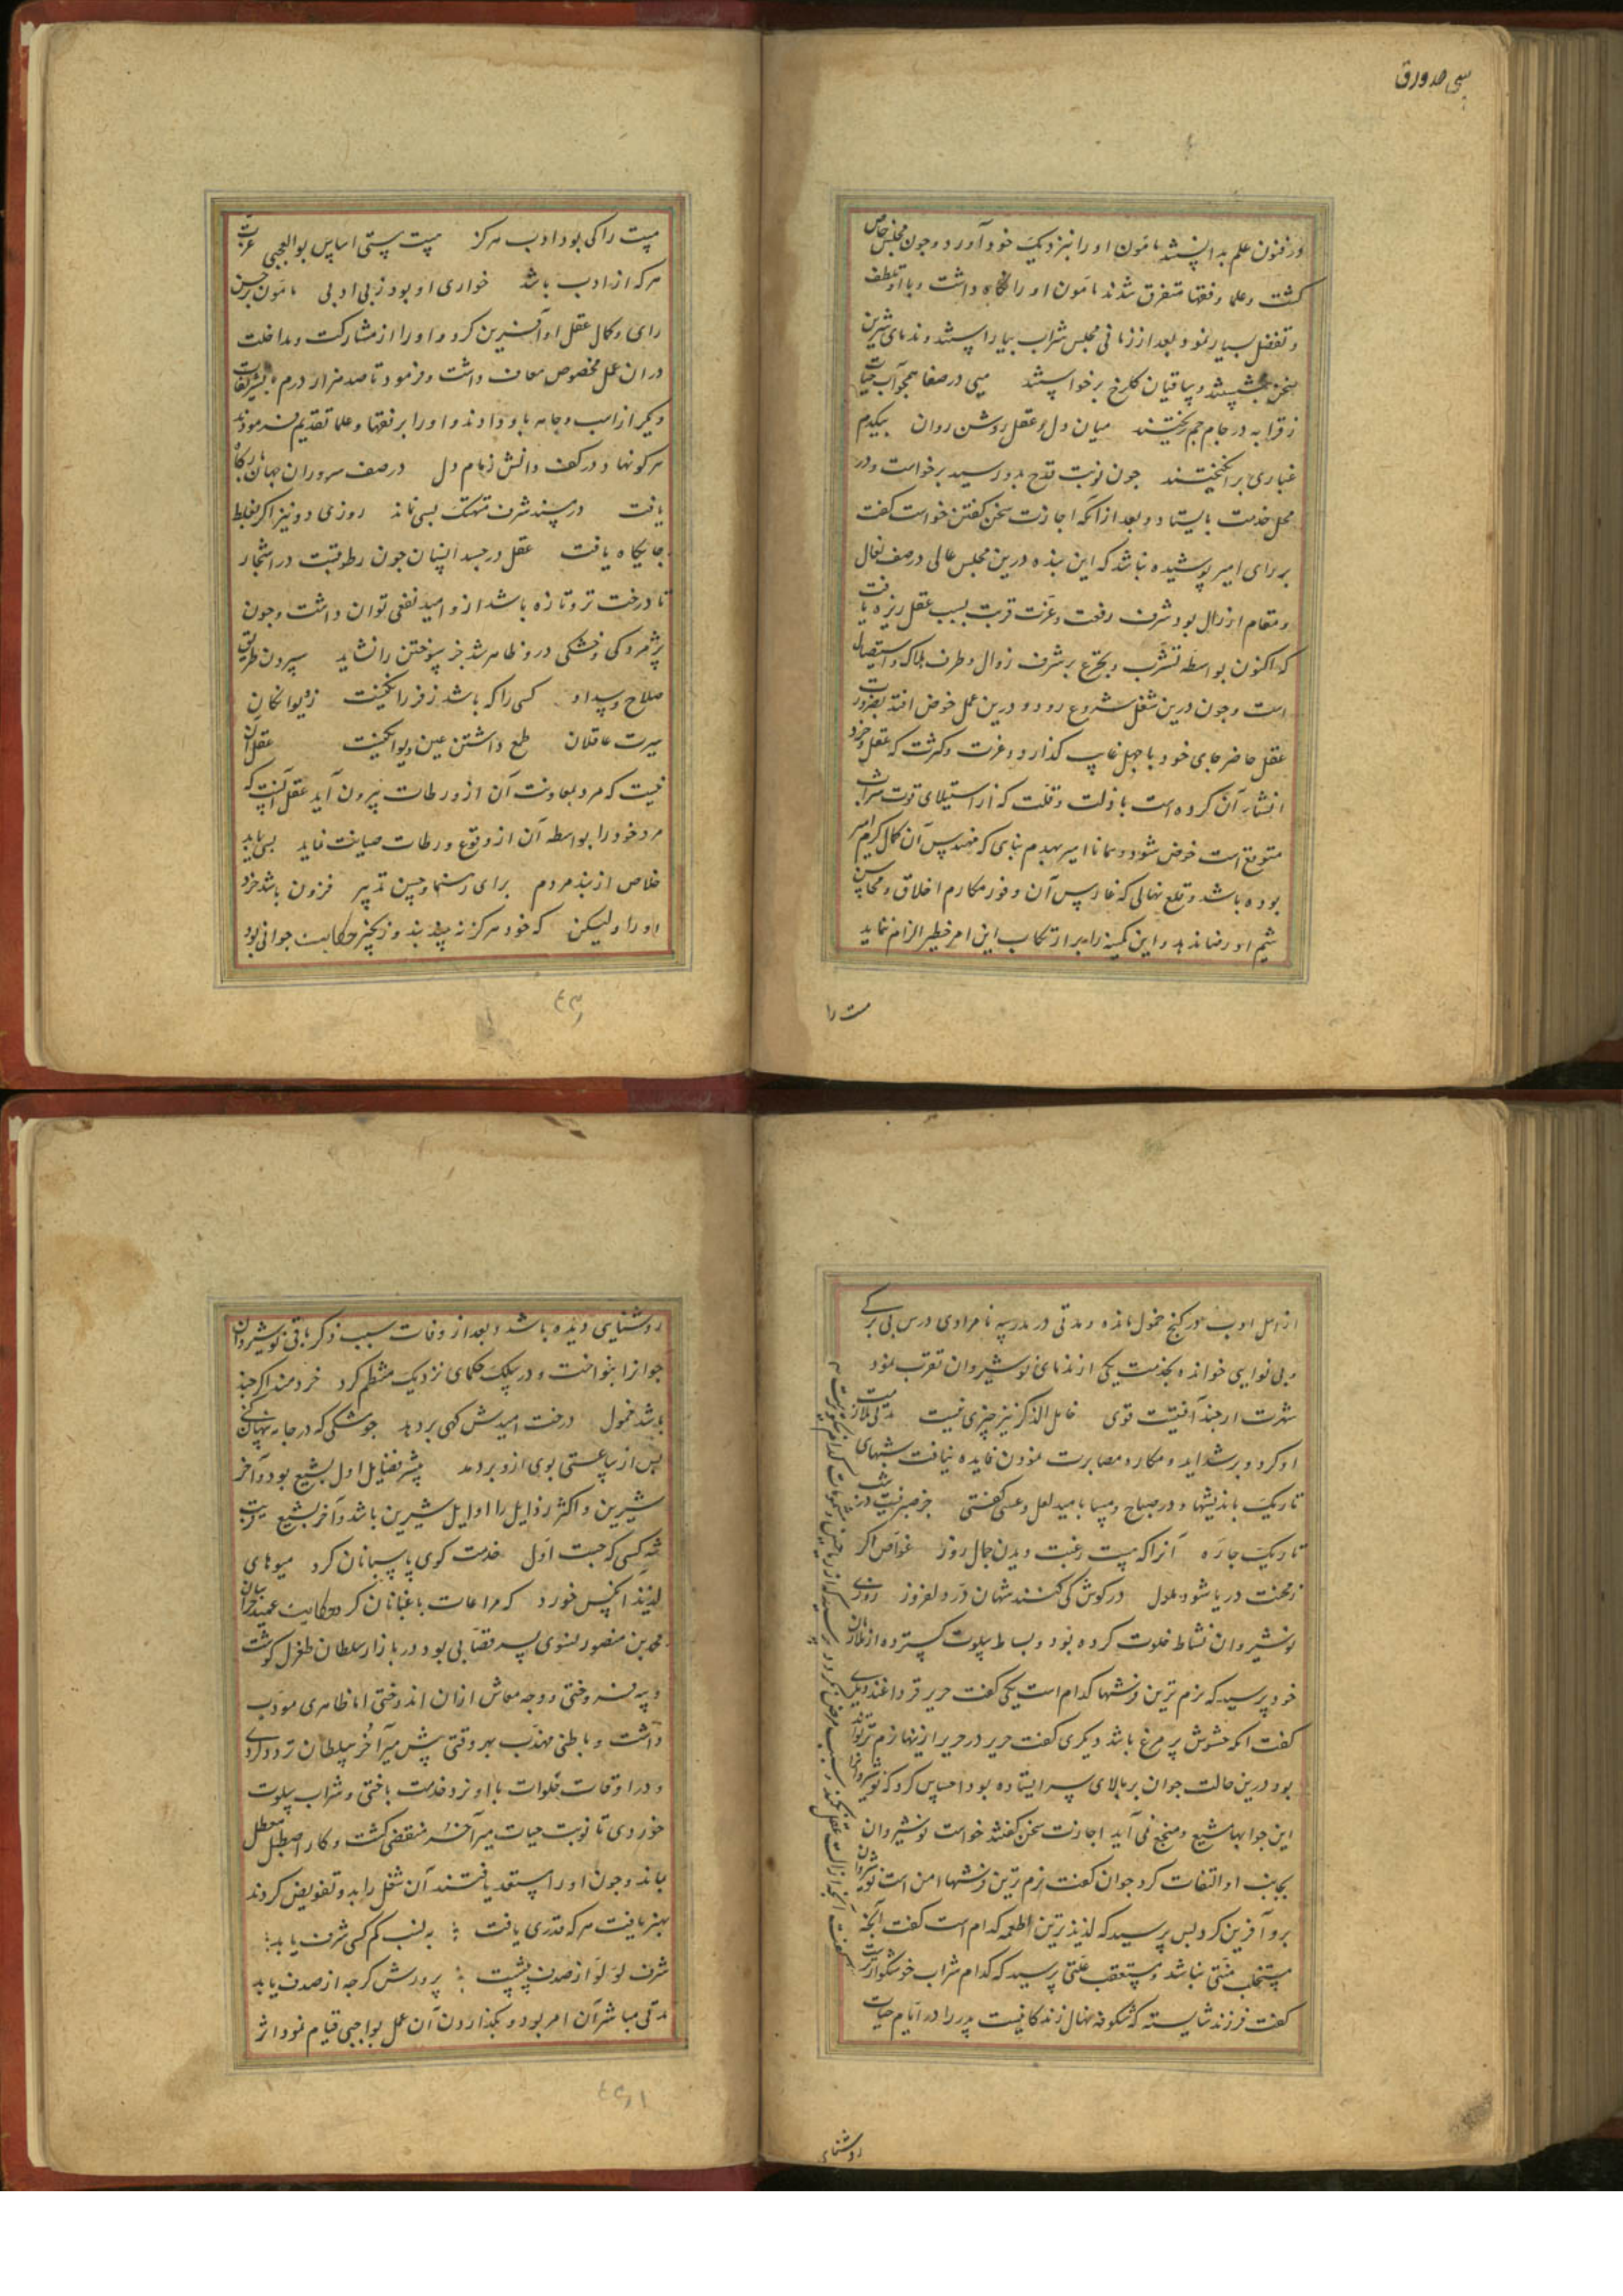 سی صد ورق
در فنون علم بدانستند مامون او را بنزدیک خود آورد و جون مجلس خاص
کشت و علما و فقها متفرق شدند مامون او را نکاه داشت و با او تلطف
و تفضل بسیار نمود و بعد از زمانی مجلس شراب بیاراستند و ندمای شیرین
سخن بنشستند و ساقیان کلرخ برخواستند میی در صفا همجو آب حیات
ز قرابه در جام جم ریختند میان دل و عقل روشن روان بیکدم
غباری برانکیختند جون نوبت قدح بدو رسید برخواست و در
محل خدمت بایستاد و بعد از آنکه اجازت سخن کفتن خواست کفت
بر رای امیر پوشیده نباشد که این بنده درین مجلس عالی در صف نعال
و مقام ارذال بود شرف رفعت و عزت قربت بسبب عقل ریزه یافت
که اکنون بواسطه تشرب و تجرع بر شرف زوال و طرف هلاک و استیصال
است و جون درین شغل شروع رود و درین عمل خوض افتد بضرورت
عقل حاضر جای خود با جهل غایب کذارد و عزت و کثرت که عقل و خرد
انشاء آن کرده است با ذلت و قلت که از استیلای قوت شراب
متوقع است خوض شود و همانا امیر بهدم بنای که مهندس آن کمال کرم امیر
بوده باشد و قلع نهالی که غارس آن وفور مکارم اخلاق و محاسن
شیم او رضا ندهد و این کمینه را بر ارتکاب این امر خطیر الزام ننماید
مست را
مست را کی بود ادب هرکز مست پستی اساس بوالعجبی عزت
هرکه از ادب باشد خواری او بود ز بی ادبی مامون بر حسن
رای و کمال عقل او آفرین کرد و او را از مشارکت و مداخلت
در ان عمل مخصوص معاف داشت و فرمود تا صد هزار درم و تشریفات
دیکر از اسب و جامه باو دادند و او را بر فقها و علما تقدیم فرمودند
هرکو نهاد در کف دانش زمام دل در صف سروران جهان بارکاه
یافت در مسند شرف متهتک بسی نماند روزی دو نیز اکر بغلط
جایکاه یافت عقل در جسد انسان جون رطوبتست در اشجار
تا درخت تر و تازه باشد ازو امید نفعی توان داشت و جون
پژمردکی و خشکی درو ظاهر شد جز سوختن را نشاید سپردن طریق
صلاح و سداد کسی را که باشد ز فرزانکیست ز دیوانکان
سیرت عاقلان طمع داشتن عین دیوانکیست عقل آن
نیست که مرد بمعاونت آن از ورطات بیرون آید عقل آنست که
مرد خود را بواسطه آن از وقوع ورطات صیانت نماید بسی باید
خلاص از بند مردم برای رهنما و حسن تدبیر فزون باشد خرد
او را ولیکن که خود هرکز نه بیند بند و زنجیر حکایت جوانی بود
از اهل ادب در کنج خمول مانده و مدتی در مدرسه نامرادی درس بی برکی
و بی نوایی خوانده بخدمت یکی از ندمای نوشیروان تقرب نمود
شهرت ارجند آفتیست قوی خامل الذکر نیز چیزی نیست مدتی ملازمت
او کرد و بر شداید و مکاره مصابرت نمودن فایده نیافت شبهای
تاریک باندیشها و در صباح و مسا بامید لعل و عسی کفتی جز صبر نیست در شب
تاریک چاره آنرا که هست رغبت دیدن جمال روز غواص اکر
ز محنت دریا شود ملول در کوش کی کنند شهان در دلفروز روزی
نوشیروان نشاط خلوت کرده بود و بساط سلوت کسترده از ملازمان
خود پرسید که نرم ترین فرشها کدام است یکی کفت حریر قرداغند دیکری
کفت انکه حشوش پر مرغ باشد دیکری کفت حریر در حریر ازینها نرم تر تواند
بود درین حالت جوان بر بالای سر ایستاده بود احساس کرد که نوشیروانرا
این جوابها مشبع و منجع نمی آید اجازت سخن کفتند خواست نوشیروان
بجانب او التفات کرد جوان کفت نرم ترین فرشها امن است نوشیروان
برو آفرین کرد بس پرسید که لذیذ ترین اطعمه کدام است کفت آنجه
مستجلب منتی نباشد و مستعقب علتی پرسید که کدام شراب خوشکوارترست
کفت آنجه ازالت عقل نکند و سبب مرض نکردد پرسید که از ریاحین و مشمومات کدام نیکوترست
کفت فرزند شایسته که شکوفه نهال زندکانیست پدر را در ایام حیات
روشنایی
روشنایی دیده باشد و بعد از وفات سبب ذکر باقی نوشیروان
جوانرا بنواخت و در سلک حکمای نزدیک منتظم کرد خردمند اکرچند
باشد خمول درخت امیدش کهی بر دهد جو مشکی که در جامه پنهان کنی
پس از ساعتی بوی ازو بردمد بیشتر فضایل اول بشیع بود و آخر
شیرین و اکثر رذایل را اوایل شیرین باشد و آخر بشیع بیت
شه کسی که جست اول خدمت کوی پاسبانان کرد میوهای
لذیذ آنکس خورد که مراعات باغبانان کرد حکایت عمید خراسان
محمد بن منصور نسوی پسر قصابی بود در بازار سلطان طغرل کوشت
و پیه فروختی و وجه معاش ازان اندوختی اما ظاهری مودب
داشت و باطنی مهذب بهر وقتی پیش میرآخر سلطان تردد کردی
و در اوقات خلوات با او نرد خدمت باختی و شراب سلوت
خوردی تا نوبت حیات میرآخر منقضی کشت و کار اصطبل معطل
بماند و جون او را مستعد یافتند آن شغل را بدو تفویض کردند
بهنر یافت هرکه قدری یافت به نسب کم کسی شرف یابد
شرف لولو از صدف بیشست پرورش کرجه از صدف یابد
مدتی مباشر آن امر بود و بکذاردن آن عمل بواجبی قیام نمود اثر